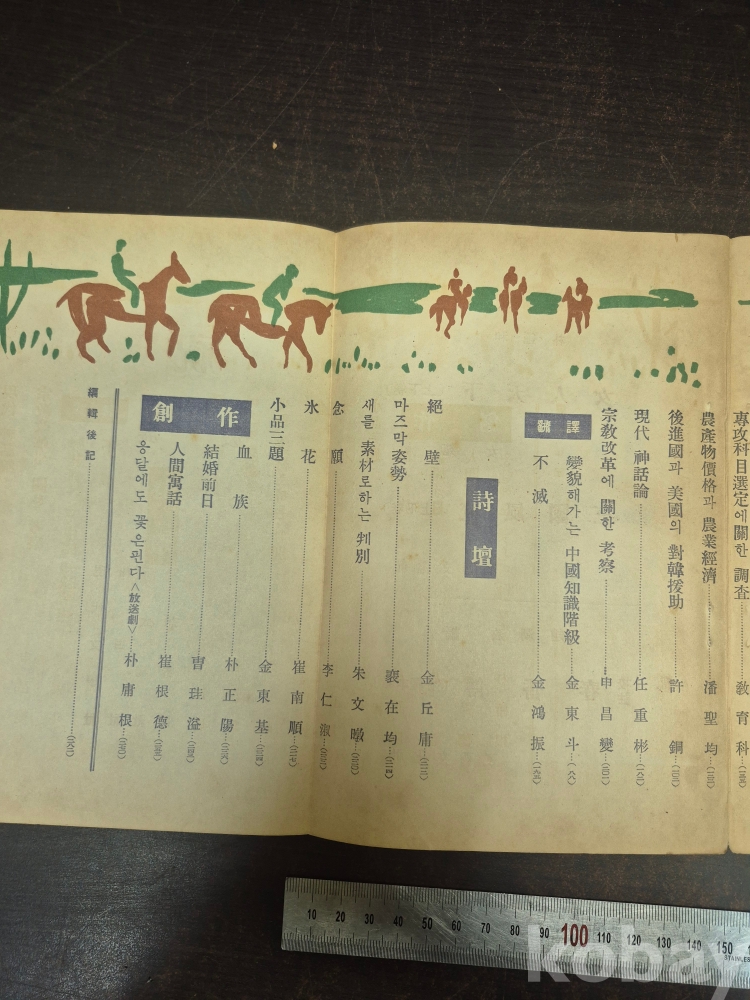 專攻科目選定에關한 調査 敎育科
農產物價格과 農業經濟 潘聖均
後進國과 美國의 對韓援助 許鋼
現代 神話論 任重彬
宗敎改革에 關한 考察 申昌燮
飜譯
變貌해가는 中國知識階級 金東斗
不滅 金鴻振
詩壇
絕壁 金丘庸
마즈막姿勢 裵在均
새를 素材로하는 判別 朱文暾
念願 李仁淑
氷花 崔南順
小品三題 金東基
創作
血族 朴正陽
結婚前日 曺珪溢
人間寓話 崔根德
응달에도 꽃은핀다<放送劇> 朴庸根
編輯後記
10 20 30 40 50 60 70 80 90 100 110 120 130 140 150
STAINLES
kobay